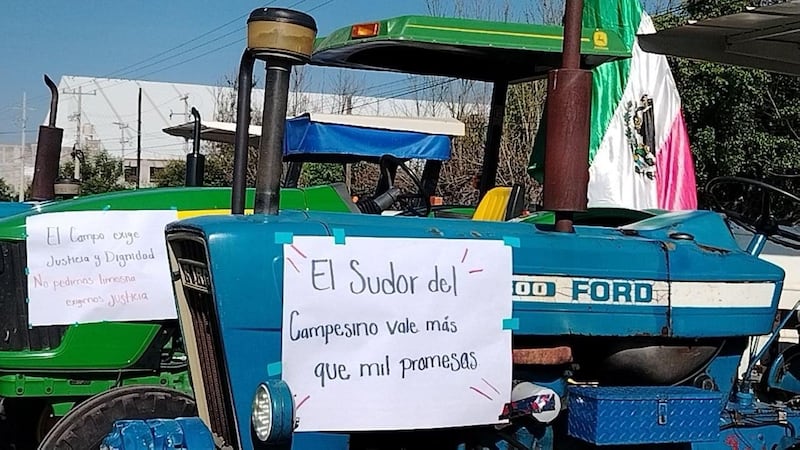 El Campo exige
Justicia y Dignidad
No pedimos limosna
exigimos Justicia
El Sudor del
Campesino vale más
que mil promesas
00 FORD